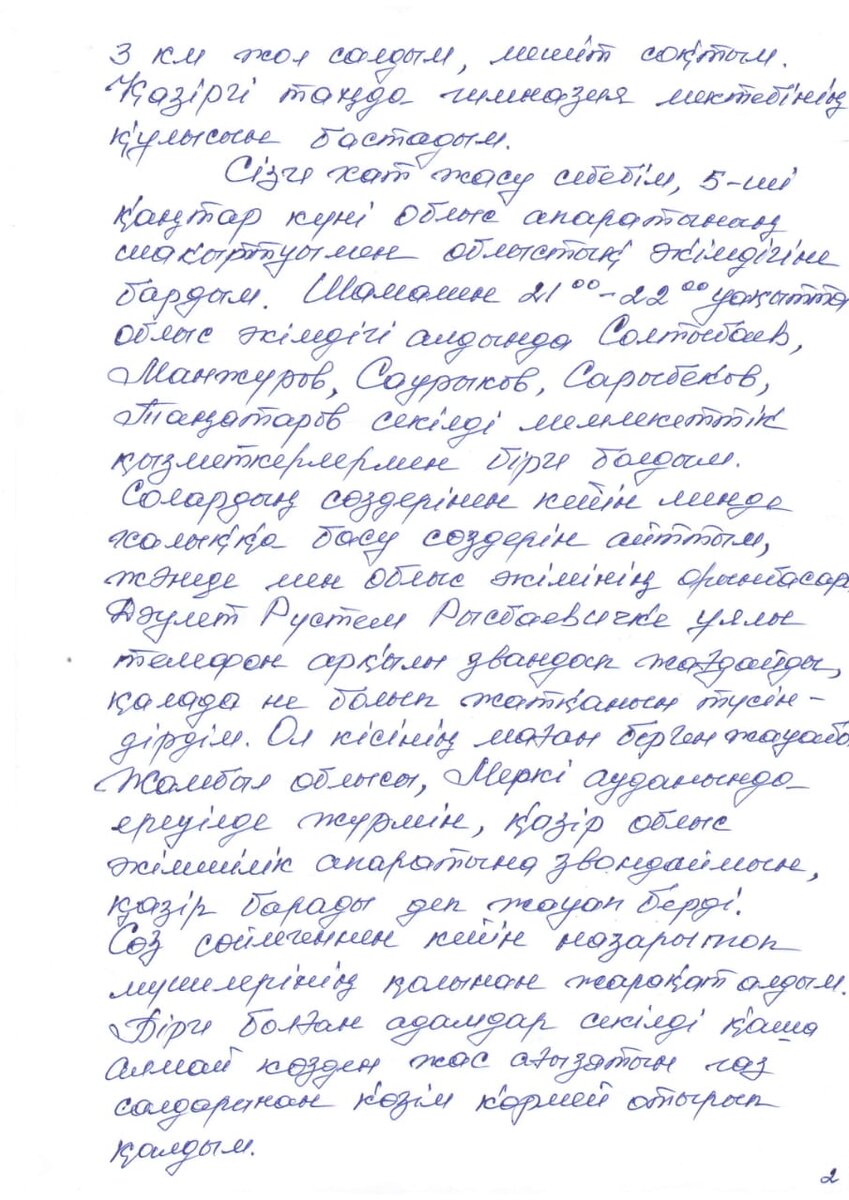 3 км жол салдым, мешіт соқтым.
Қазіргі таңда гимназия мектебінің
құлысын бастадым.
Сізге хат жасу себебім, 5-ші
қаңтар күні облыс апаратының
шақыртуымен облыстық әкімдігіне
бардым. Шамамен 21⁰⁰-22⁰⁰ уақытта
облыс әкімдігі алдында Солтыбаев,
Манжуров, Саурыков, Сарыбеков,
Таңатаров секілді мемлекеттік
қызметкерлермен бірге болдым.
Солардың сөздерінен кейін менде
халыққа басу сөздерін айттым,
жәнеде мен облыс әкімінің орынбасар
Дәулет Рустем Рысбаевичке ұялы
телефон арқылы звандап жағдайды,
қалада не болып жатқанын түсін-
дірдім. Ол кісінің маған берген жауабы
Жамбыл облысы, Меркі ауданында
ереуілде жүрмін, қазір облыс
әкімшілік апаратына звандаймын,
қазір барады деп жауап берді.
Сөз сөйлегеннен кейін назары топ
мүшелерінің қолынан жарақат алдым.
Бірге болған адамдар секілді қаша
алмай көзден жас ағызатын газ
салдарынан көзім көрмей отырып
қалдым.
2